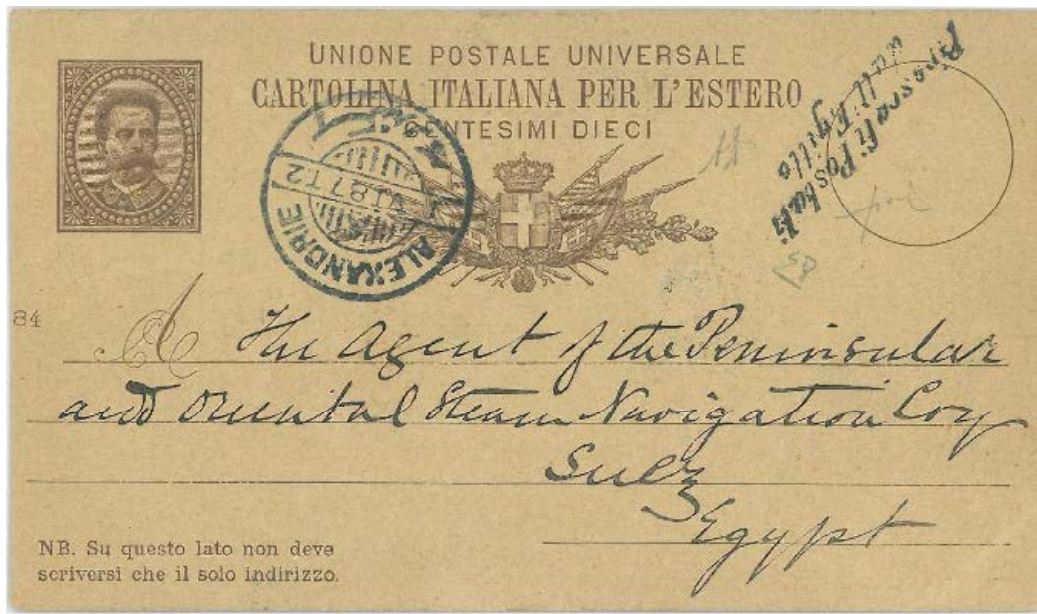 UNIONE POSTALE UNIVERSALE
CARTOLINA ITALIANA PER L'ESTERO
CENTESIMI DIECI
Piroscafi Postali
dall'Egitto
ALEXANDRIE
VI 87 T2
84
A The Agent of the Peninsular
and Oriental Steam Navigation Coy
Suez
Egypt
NB. Su questo lato non deve
scriversi che il solo indirizzo.